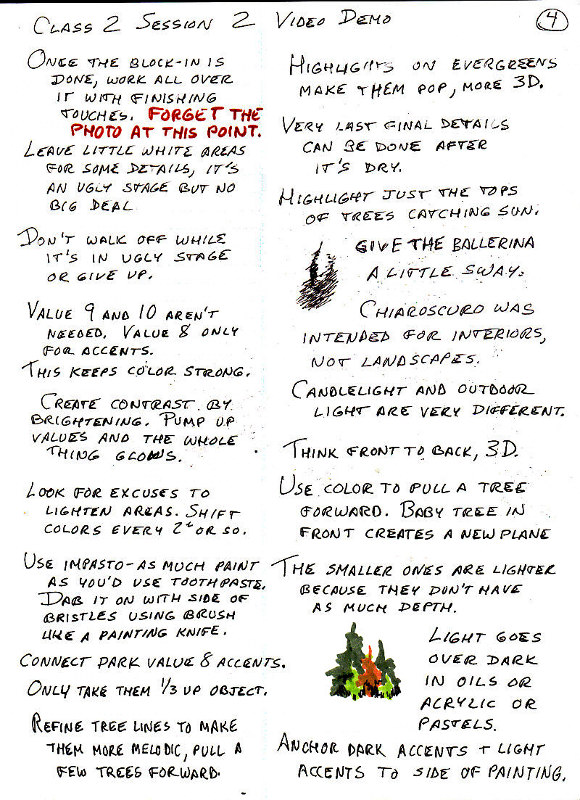 CLASS 2 SESSION 2 VIDEO DEMO
4
ONCE THE BLOCK-IN IS
DONE, WORK ALL OVER
IT WITH FINISHING
TOUCHES. FORGET THE
PHOTO AT THIS POINT.
LEAVE LITTLE WHITE AREAS
FOR SOME DETAILS, IT'S
AN UGLY STAGE BUT NO
BIG DEAL
DON'T WALK OFF WHILE
IT'S IN UGLY STAGE
OR GIVE UP.
VALUE 9 AND 10 AREN'T
NEEDED. VALUE 8 ONLY
FOR ACCENTS.
THIS KEEPS COLOR STRONG.
CREATE CONTRAST BY
BRIGHTENING. PUMP UP
VALUES AND THE WHOLE
THING GLOWS.
LOOK FOR EXCUSES TO
LIGHTEN AREAS. SHIFT
COLORS EVERY 2" OR SO.
USE IMPASTO-AS MUCH PAINT
AS YOU'D USE TOOTHPASTE.
DAB IT ON WITH SIDE OF
BRISTLES USING BRUSH
LIKE A PAINTING KNIFE.
CONNECT DARK VALUE 8 ACCENTS.
ONLY TAKE THEM 1/3 UP OBJECT.
REFINE TREE LINES TO MAKE
THEM MORE MELODIC, PULL A
FEW TREES FORWARD.
HIGHLIGHTS ON EVERGREENS
MAKE THEM POP, MORE 3D.
VERY LAST FINAL DETAILS
CAN BE DONE AFTER
IT'S DRY.
HIGHLIGHT JUST THE TOPS
OF TREES CATCHING SUN.
GIVE THE BALLERINA
A LITTLE SWAY.
CHIAROSCURO WAS
INTENDED FOR INTERIORS,
NOT LANDSCAPES.
CANDLELIGHT AND OUTDOOR
LIGHT ARE VERY DIFFERENT.
THINK FRONT TO BACK, 3D.
USE COLOR TO PULL A TREE
FORWARD. BABY TREE IN
FRONT CREATES A NEW PLANE
THE SMALLER ONES ARE LIGHTER
BECAUSE THEY DON'T HAVE
AS MUCH DEPTH.
LIGHT GOES
OVER DARK
IN OILS OR
ACRYLIC OR
PASTELS.
ANCHOR DARK ACCENTS + LIGHT
ACCENTS TO SIDE OF PAINTING.